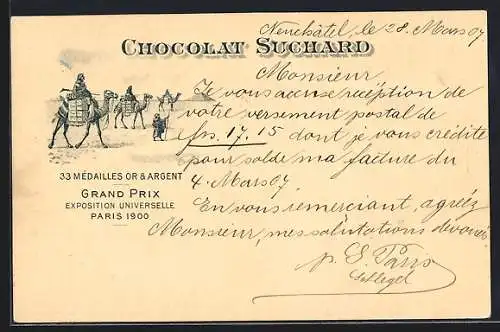 Neuchâtel, le 28. Mars 07
CHOCOLAT SUCHARD
Monsieur
Je vous accuse réception de
votre versement postal de
frs. 17.15 dont je vous crédite
pour solde ma facture du
4. Mars 07.
En vous remerciant, agréez
Monsieur, mes salutations dévouées.
p. S.
33 MÉDAILLES OR & ARGENT
GRAND PRIX
EXPOSITION UNIVERSELLE
PARIS 1900